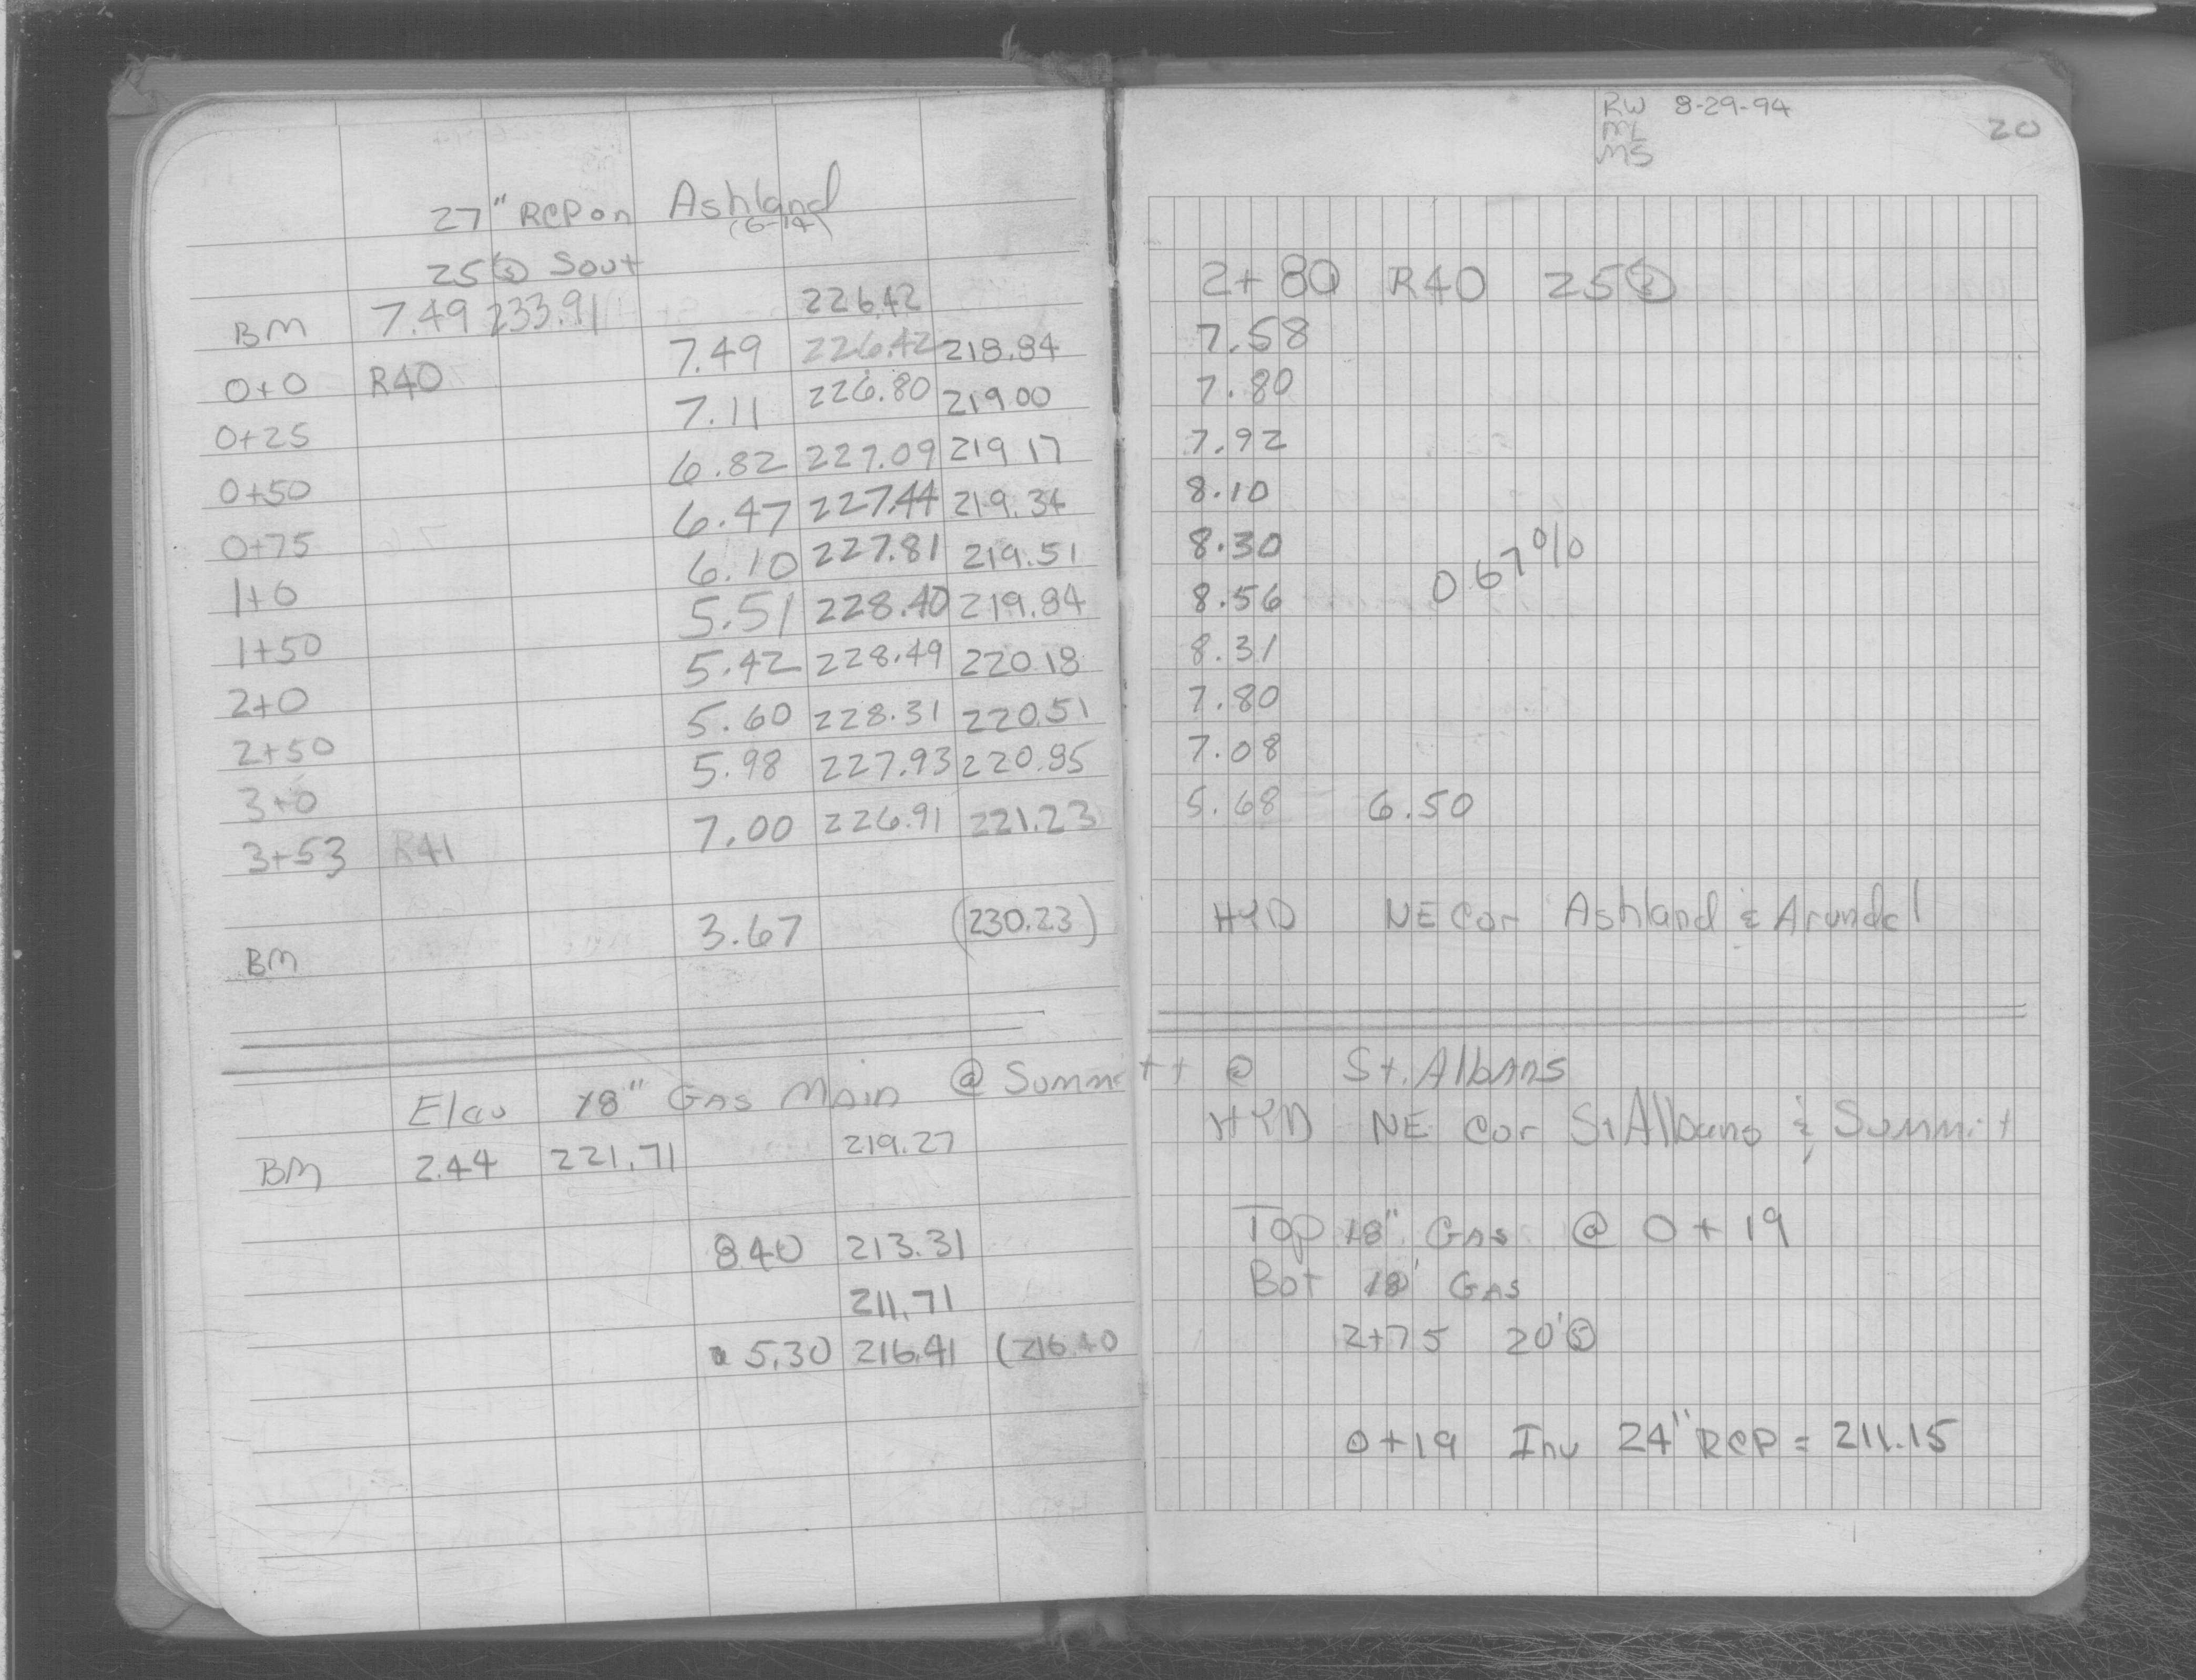 27" RCP on Ashland
(G-14)
25 Ⓢ Sout
BM 7.49 233.91 226.42
0+0 R40 7.49 226.42 218.84
0+25 7.11 226.80 219.00
0+50 6.82 227.09 219.17
0+75 6.47 227.44 219.34
1+0 6.10 227.81 219.51
1+50 5.51 228.40 219.84
2+0 5.42 228.49 220.18
2+50 5.60 228.31 220.51
3+0 5.98 227.93 220.85
3+53 R41 7.00 226.91 221.23
BM 3.67 (230.23)
Elev 18" Gas Main @ Summitt @ St. Albans
BM 2.44 221.71 219.27
8.40 213.31
211.71
5.30 216.41 (216.40
RW 8-29-94
ML
MS
20
2+80 R40 25Ⓢ
7.58
7.80
7.92
8.10
8.30
0.67%
8.56
8.31
7.80
7.08
5.68 6.50
HYD NE Cor Ashland & Arundel
HYD NE Cor St Albans & Summit
Top 18" Gas @ 0+19
Bot 18" Gas
2+75 20'Ⓢ
0+19 Inv 24" RCP = 211.15